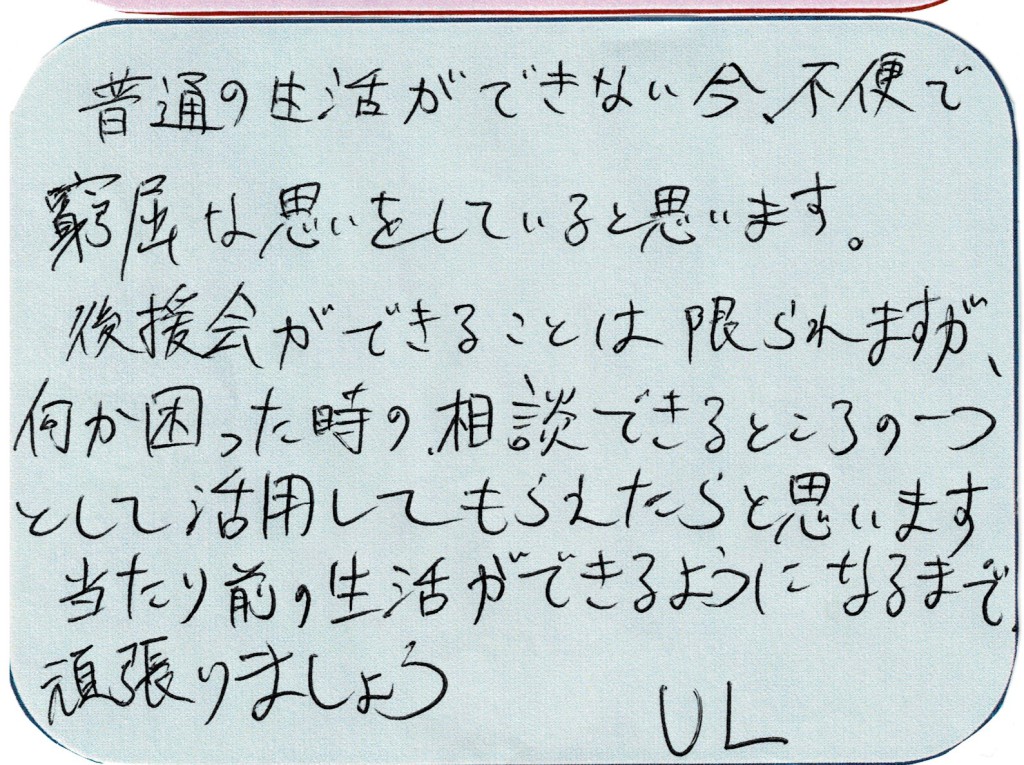 普通の生活ができない今、不便で
窮屈な思いをしていると思います。
後援会ができることは限られますが、
何か困った時の、相談できるところの一つ
として活用してもらえたらと思います
当たり前の生活ができるようになるまで、
頑張りましょう
UL